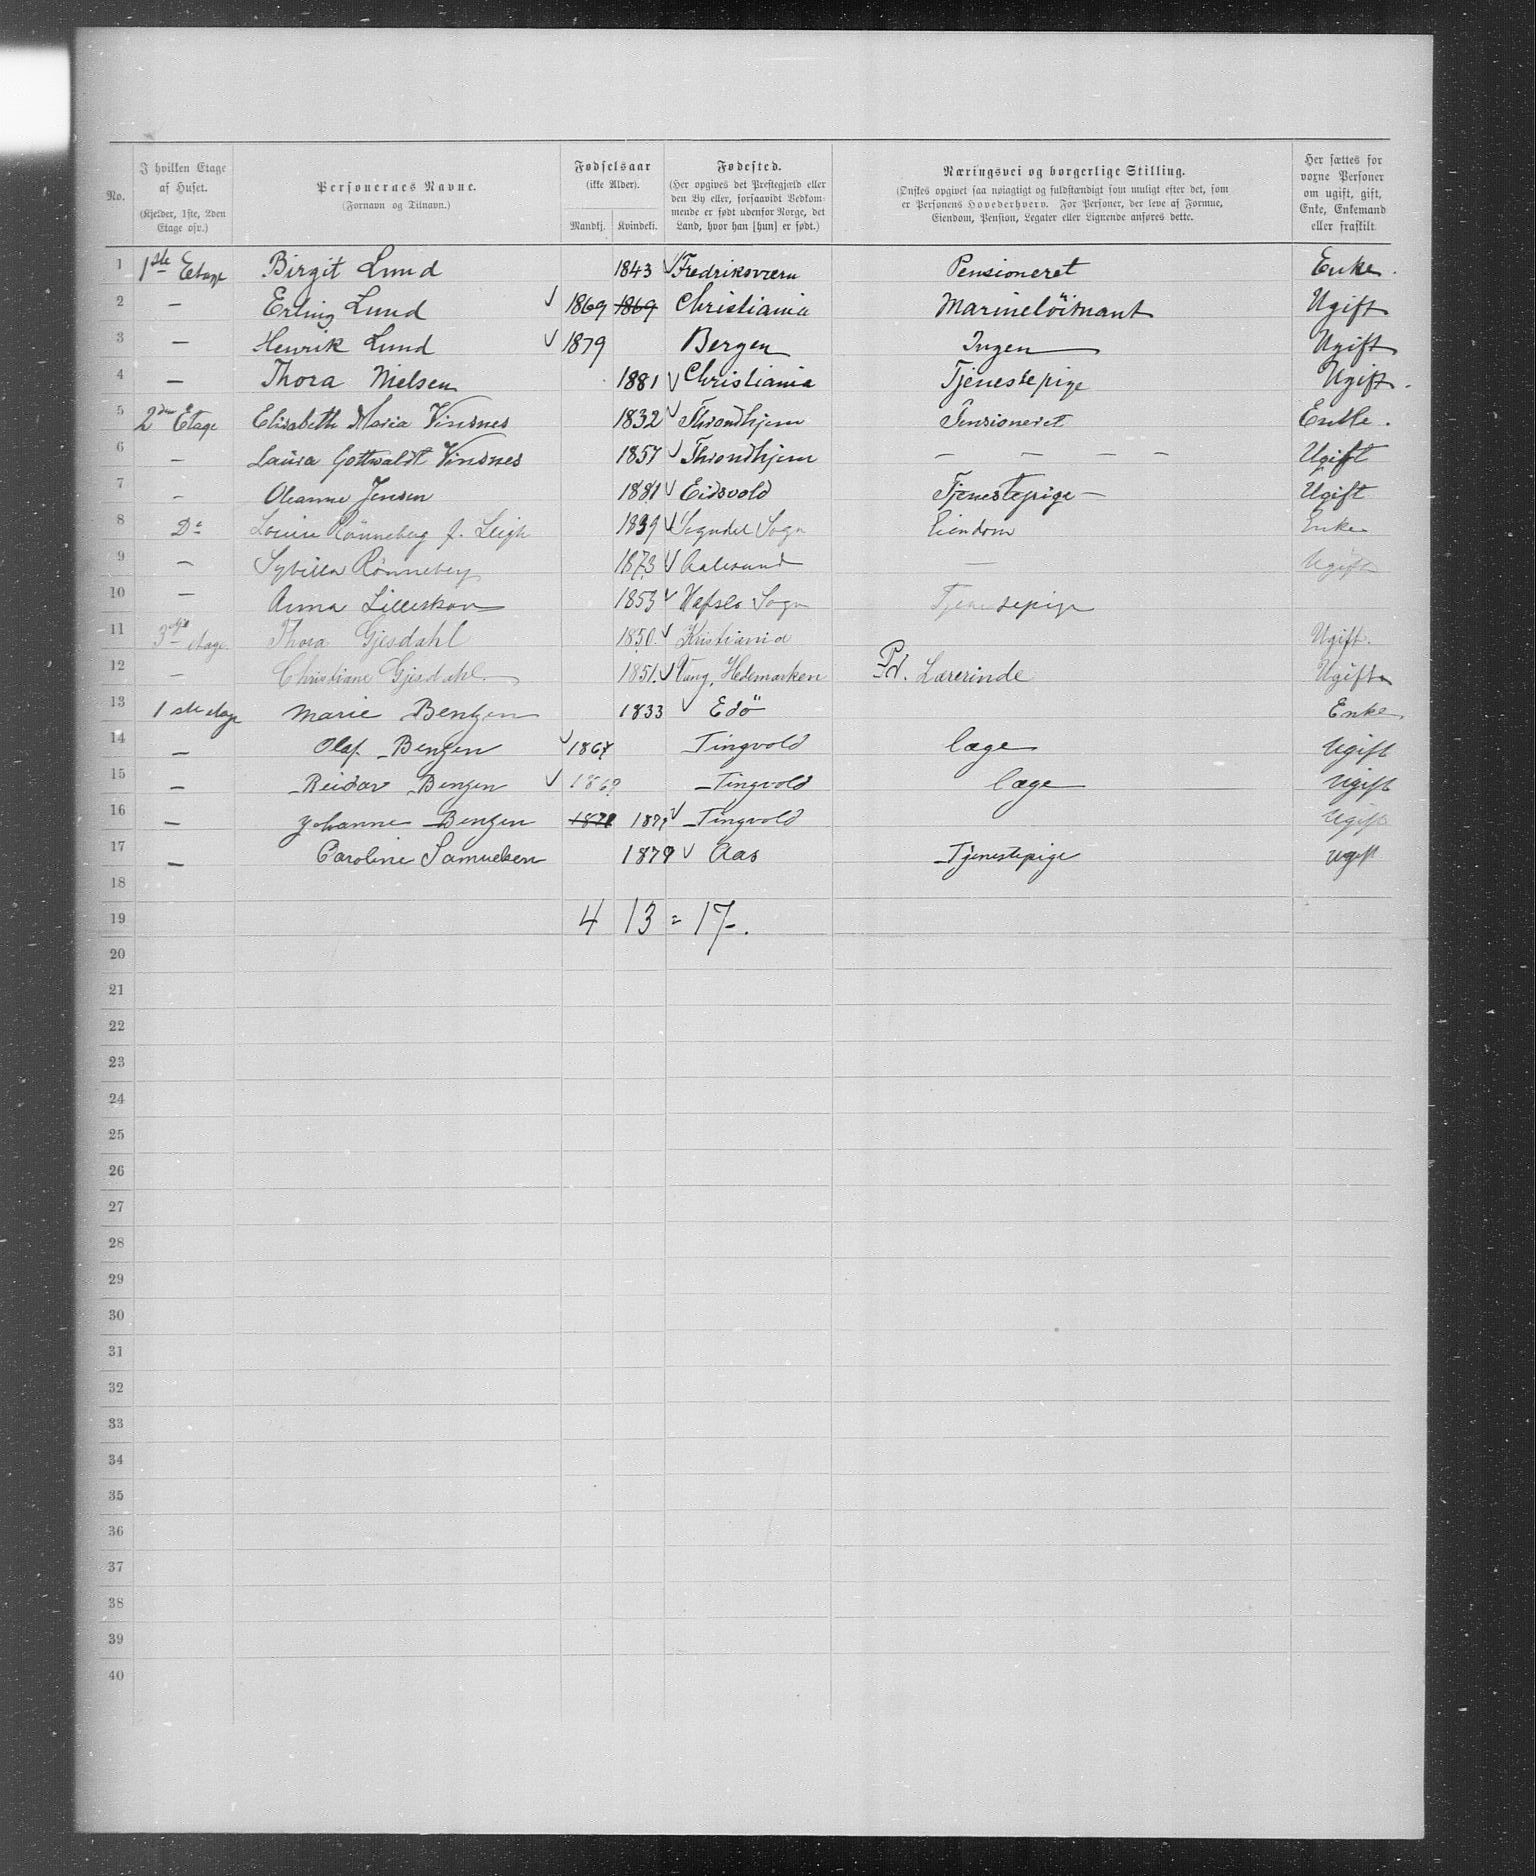 No.
I hvilken Etage af Huset.
(Kjelder, 1ste, 2den Etage osv.)
Personernes Navne.
(Fornavn og Tilnavn.)
Fødselsaar
(ikke Alder).
Mandkj. Kvindekj.
Fødested.
(Her opgives det Prestegjæld eller
den By eller, forsaavidt Vedkom-
mende er født udenfor Norge, det
Land, hvor han [hun] er født.)
Næringsvei og borgerlige Stilling.
(Ønskes opgivet saa nøiagtigt og fuldstændigt som muligt efter det, som
er Personens Hovederhverv. For Personer, der leve af Formue,
Eiendom, Pension, Legater eller Lignende anføres dette.
Her sættes for
voxne Personer
om ugift, gift,
Enke, Enkemand
eller fraskilt
1 1ste Etage Birgit Lund 1843 √ Fredriksværn Pensioneret Enke.
2 — Erling Lund √ 1869 1869 Christiania Marinelöitnant Ugift
3 — Henrik Lund √ 1879 Bergen Ingen Ugift
4 — Thora Nielsen 1881 √ Christiania Tjenestepige Ugift.
5 2den Etage Elisabeth Maria Vinsnes 1832 √ Throndhjem Pensioneret Enke.
6 — Laura Gottwaldt Vinsnes 1857 √ Throndhjem — — — — Ugift
7 — Oleanne Jensen 1881 √ Eidsvold Tjenestepige — Ugift
8 Do Louise Rønneberg f. Leigh 1839 √ Sogndal Sogn Eiendom Enke
9 — Sybilla Rønneberg 1873 √ Aalesund — Ugift
10 — Anna Lilleskov 1853 √ Hafslo Sogn Tjenestepige
11 3die etage Thora Gjesdahl 1850. √ Kristiania Ugift.
12 — Christiane Gjesdahl. 1851. √ Vang, Hedemarken Pd. Lærerinde Ugift
13 1ste etage Marie Bentzen 1833 √ Edö Enke.
14 — Olaf Bentzen √ 1867 Tingvold læge Ugift
15 — Reidar Bentzen √ 1869 Tingvold læge Ugift
16 — Johanne Bentzen 1871 1871 √ Tingvold Ugift
17 — Caroline Samuelsen 1879 √ Aas Tjenestepige Ugift
18
19 4 13 = 17.
20
21
22
23
24
25
26
27
28
29
30
31
32
33
34
35
36
37
38
39
40